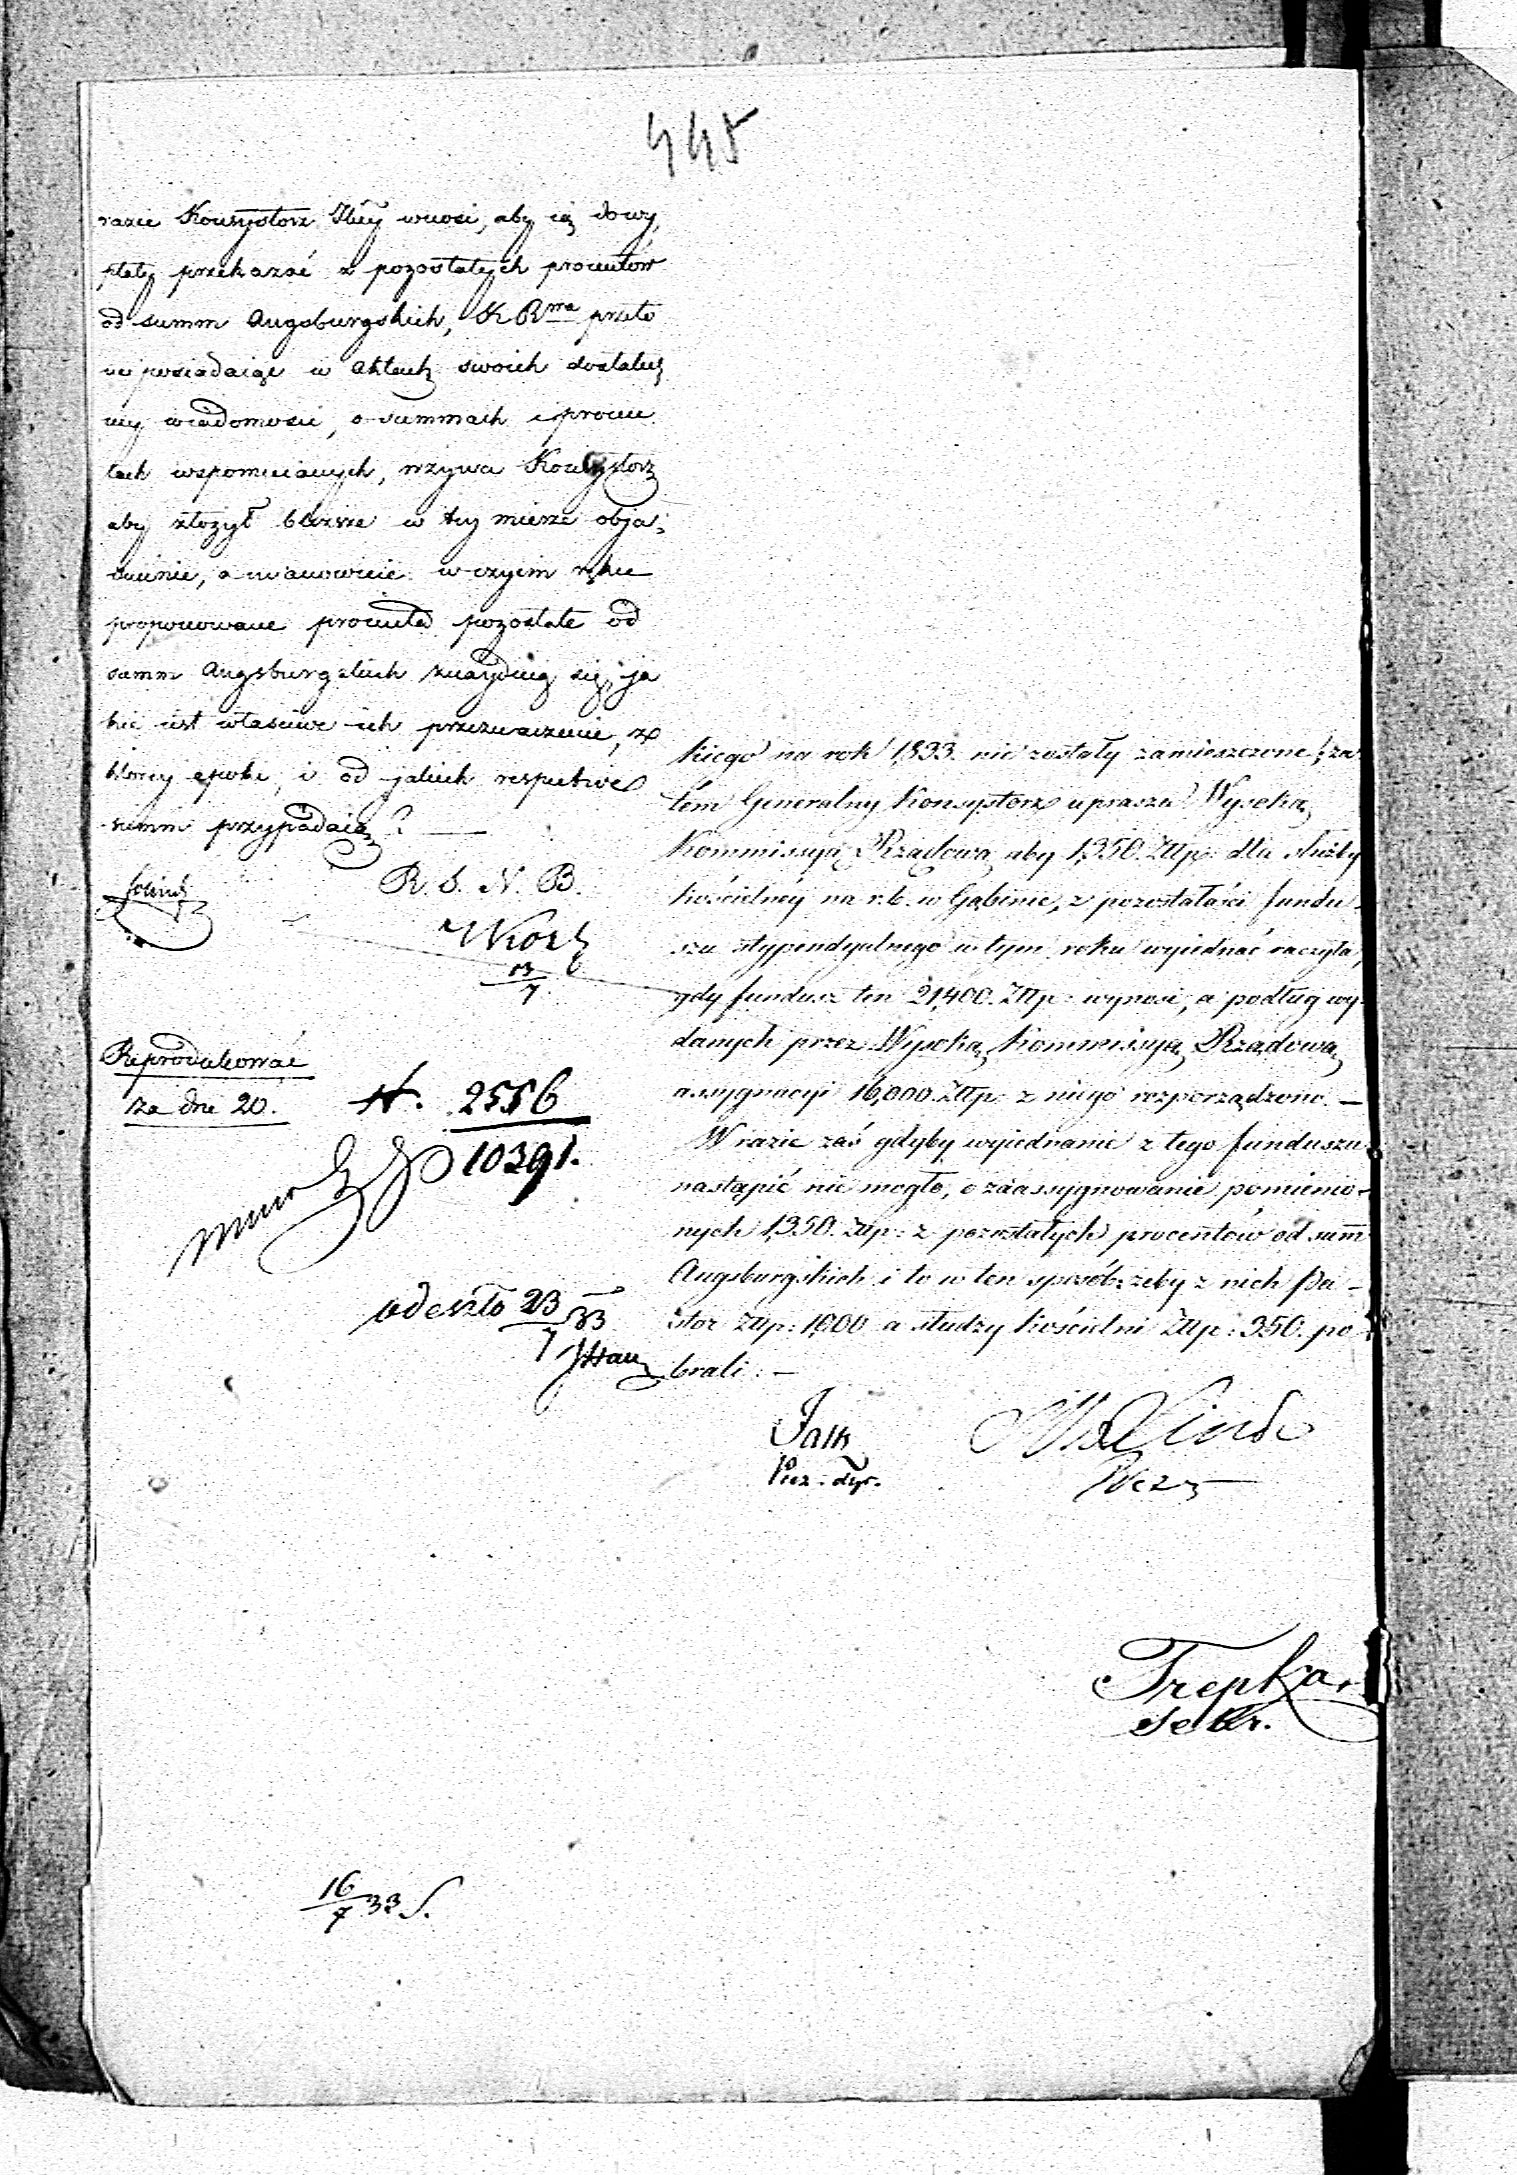 445
razie Konsystorz Glny wnosi, aby ią do wy,
płaty przekazać z pozostałych procentów
od summ Augsburgskich, K R przeto
nie posiadaiąc w Aktach swoich dostatecz
nej wiadomości, o summach i procen
tach wspomnianych, wzywa Konsystorz
aby złożył bliższe w tej mierze obja,
śnienie, a mianowicie w czyim ręku
proponowane procenta pozostałe od
summ Augsburgskich znayduią się, ja
kie iest właściwe ich przeznaczenie, z
którey epoki, i od jakich respective
summ przypadaią? —
R. S. N. B.
13/7
Reprodukować
za dni 20.
N. 2556
10391.
odeszło 23/7 33
16/7 33 S.
kiego na rok 1833. nie zostały zamieszczone, za
tém Generalny Konsystorz uprasza Wysoką
Kommissyą Rządową aby 1,350. Złłp. dla służby
kościelnéy na r. b. w Gąbinie, z pozostałości fundu-
szu stypendyalnego w tym roku wyiednać raczyła,
gdy fundusz ten 21,400. Złłp: wynosi, a podług wy-
danych przez Wysoką Kommissyą Rządową
assygnacyi 16,000. Złłp. z niego rozporządzono. —
W razie zaś gdyby wyiednanie z tego funduszu
nastąpić nie mogło, o zaassygnowanie pomienio-
nych 1,350. Złłp: z pozostałych procentów od sum̄
Augsburgskich i to w ten sposób, żeby z nich Pa-
stor Złłp: 1000 a słudzy kościelni Złłp: 350. po-
brali. —
Vice. dyr.
Trepka.
Sekr.